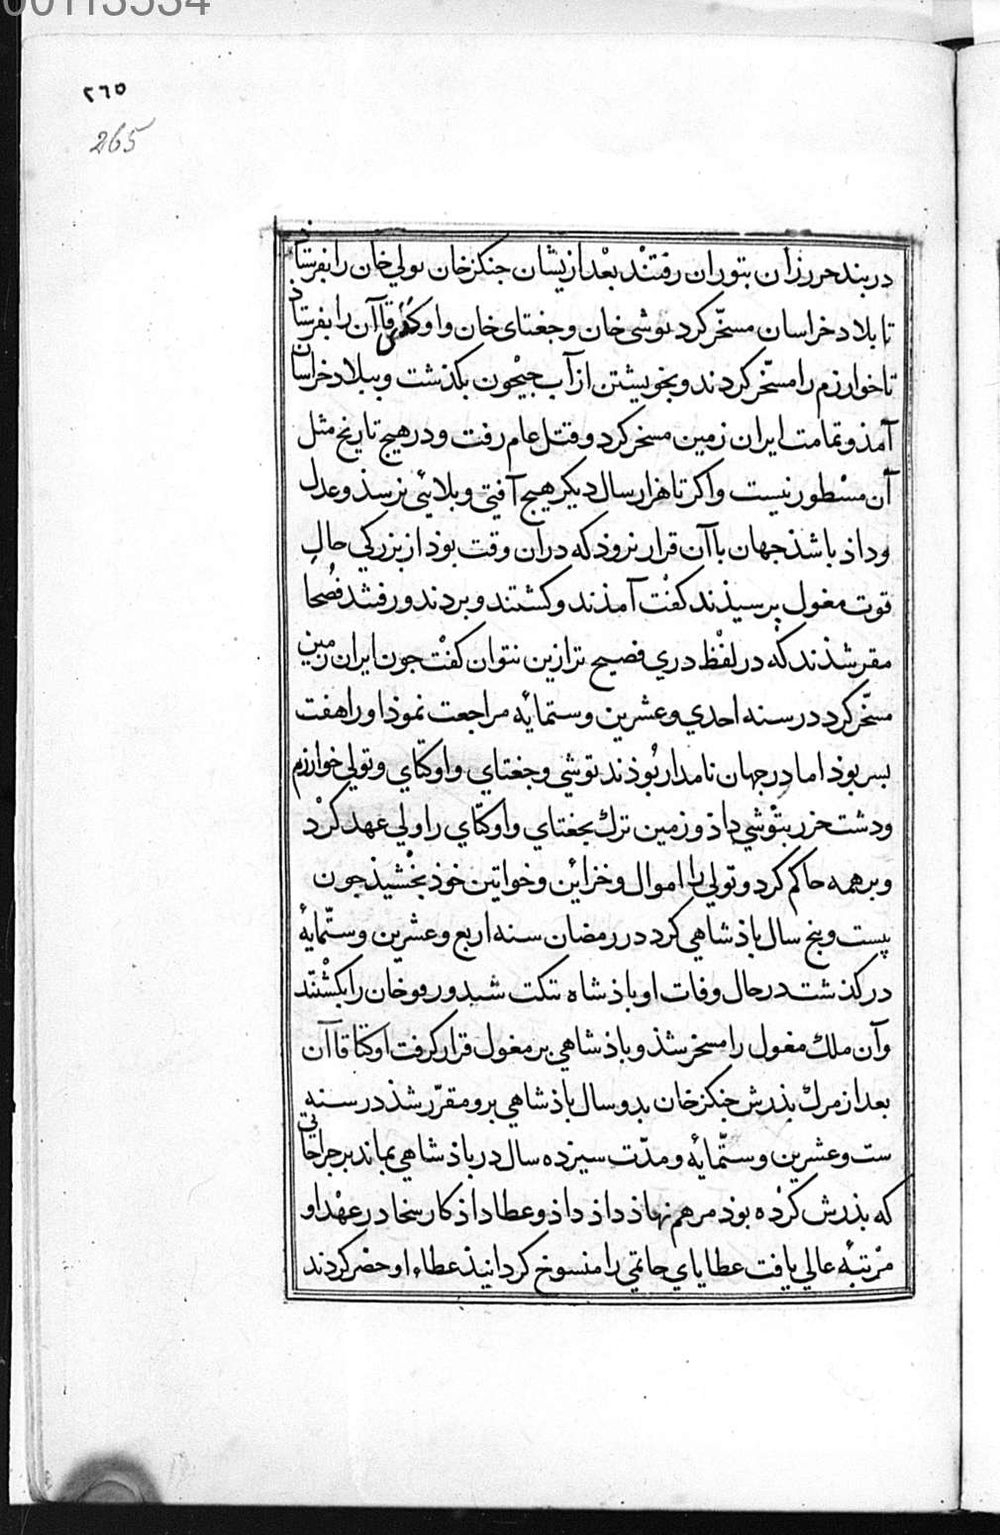 00113534
٢٦٥
265
دربند خزرزان بتوران رفتند بعْد ازیشان جنکزخان تولي خان را بفرستاذ
تا بلاد خراسان مسخّر کرد توشی خان و جغتای خان و اوکتای قاآن را بفرستاد
تا خوارزم را مسخّر کردند و بخویشتن از آب جیْحون بکذشت و ببلاد خراسان
آمذ و تمامت ایران زمین مسخر کرد و قتل عام رفت و در هیچ تاریخ مثل
آن مسْطور نیست و اکر تا هزار سال دیکر هیچ آفیتی و بلائی نرسذ و عدل
و داذ باشذ جهان باآن قرار نروذ که دران وقت بوذ از بزرکي حال
قوت مغول پرسیذند کفْت آمذند و کشتند و بردند و رفتند فُصحا
مقر شذند که در لفْظ دري فصیح تر ازین نتوان کفْت جون ایران زمین
مسخّر کرد در سنه احدي و عشرین و ستمایٔه مراجعت نموذ او را هفت
بسر بوذ اما در جهان نامدار بُوذند توشي و جغتاي و اوکتاي و تولي خوارزم
و دشت خزر بتوْشي داذ و زمین ترك بجغتاي و اوکتّاي را ولي عهد کرْد
و بر همه حاکم کرد و تولي را اموال و خزاین و خواتین خوذ بخْشیذ جون
بیست و پنج سال باذشاهي کرد در رمضان سنه اربع و عشرین و ستّمایٔه
درکذشت در حال وفات او باذشاه تنکت شیدورقو خان را بکشْتند
و آن ملك مغول را مسخر شذ و باذشاهي بر مغول قرار کرفت اوکتا قاآن
بعد از مرك بذرش جنکزخان بدو سال باذشاهي برو مقرّر شذ در سنه
ست و عشرین و ستّمایٔه و مدّت سیزده سال در باذشاهي بماند بر جراحاتی
که بذرش کرْده بوذ مرهم نهاذ داذ داذ و عطا داذ کار سخا در عهْد او
مرْتبهٔ عالي یافت عطایاي حاتمي را منسوخ کردانیذ عطاء او حضر کردند